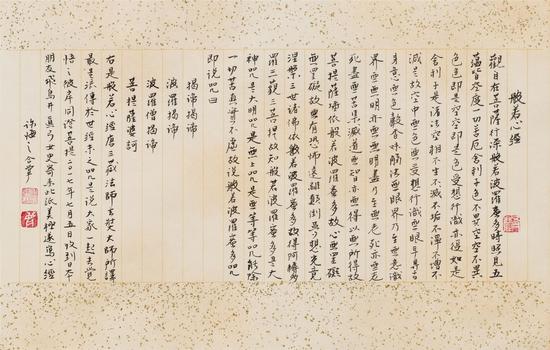 般若心經
觀自在菩薩行深般若波羅蜜多時照見五
蘊皆空度一切苦厄舍利子色不異空空不異
色色即是空空即是色受想行識亦復如是
舍利子是諸法空相不生不滅不垢不淨不增不
減是故空中無色無受想行識無眼耳鼻舌
身意無色聲香味觸法無眼界乃至無意識
界無無明亦無無明盡乃至無老死亦無老
死盡無苦集滅道無智亦無得以無所得故
菩提薩埵依般若波羅蜜多故心無罣礙
無罣礙故無有恐怖遠離顛倒夢想究竟
涅槃三世諸佛依般若波羅蜜多故得阿耨多
羅三藐三菩提故知般若波羅蜜多是大
神咒是大明咒是無上咒是無等等咒能除
一切苦真實不虛故說般若波羅蜜多咒
即說咒曰
揭諦揭諦
波羅揭諦
波羅僧揭諦
菩提薩婆訶
右是般若心經唐三藏法師玄奘大師所譯
最是法傳於世經末之咒是說大家一起去覺
悟之彼岸同證菩提二〇一七年七月五日收到日本
朋友飛鳥井真弓女史寄來此紙美極遂寫心經
許悔之合掌